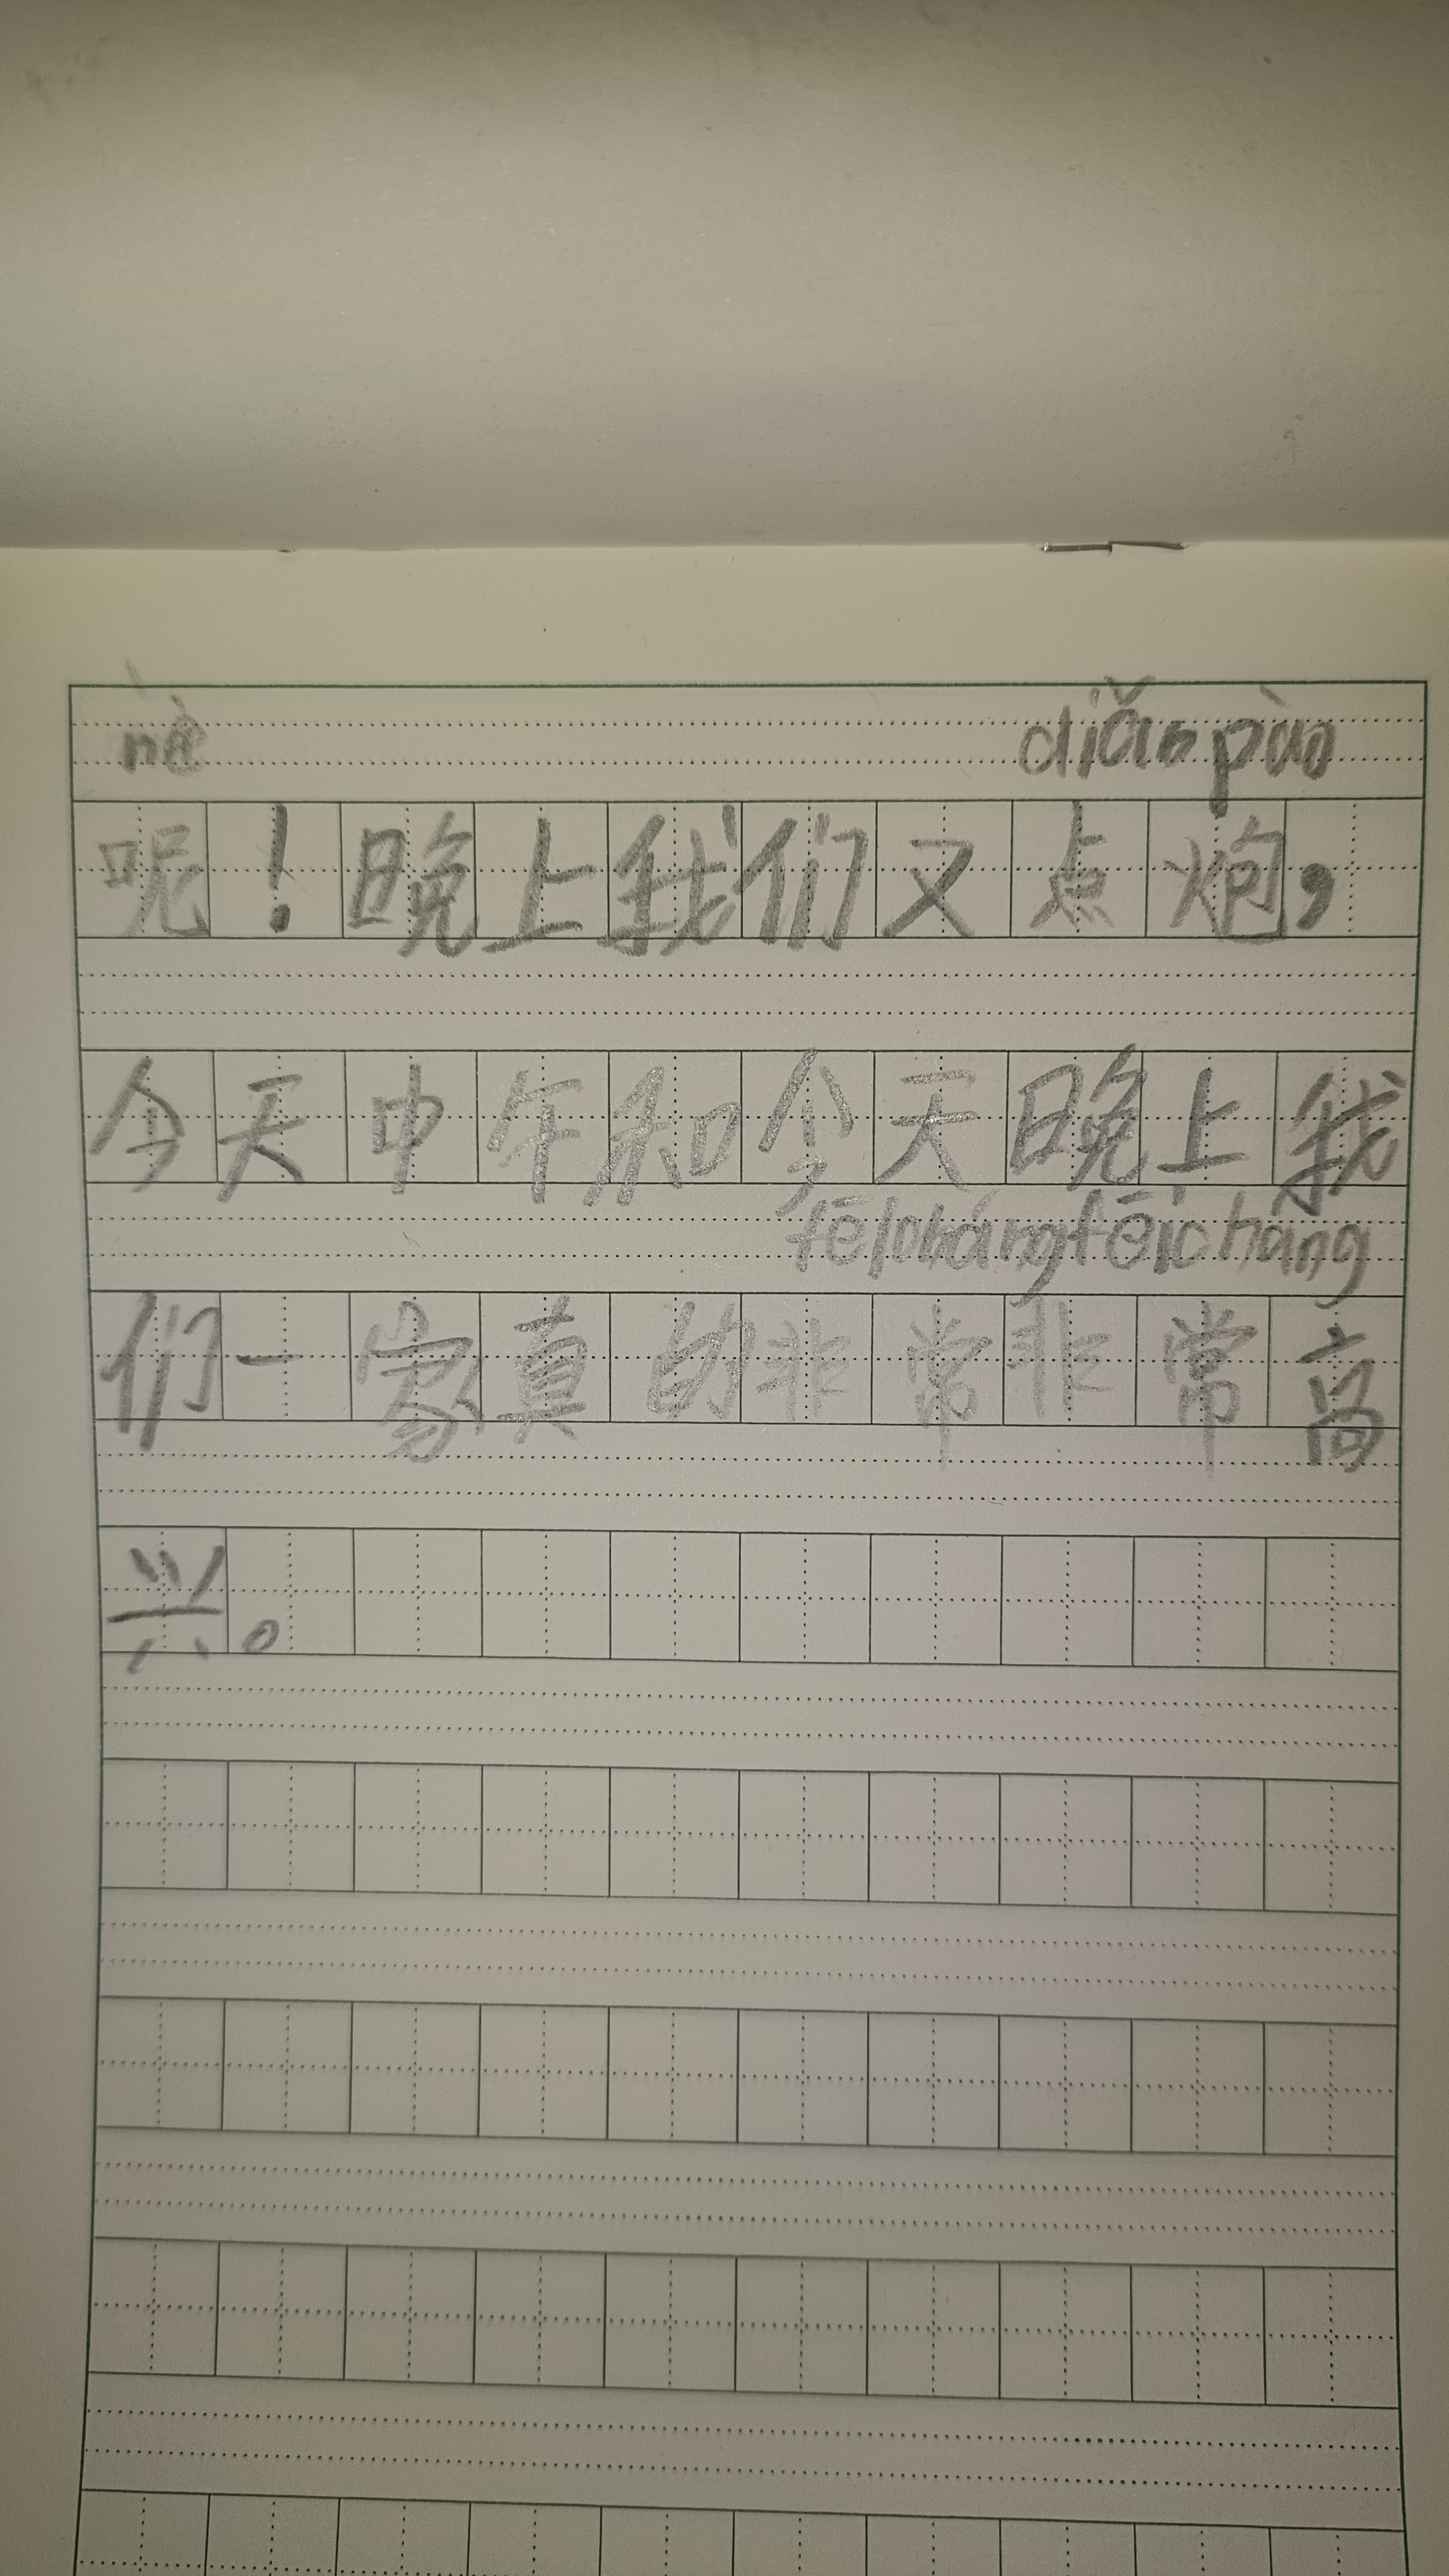 nè diǎn pào
呢！晚上我们又点炮，
今天中午和今天晚上我
fēi cháng fēi cháng
们一家真的非常非常高
兴。